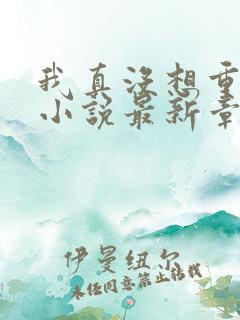 我真没想重
小说最新章
伊曼纽尔
未经同意禁止转载